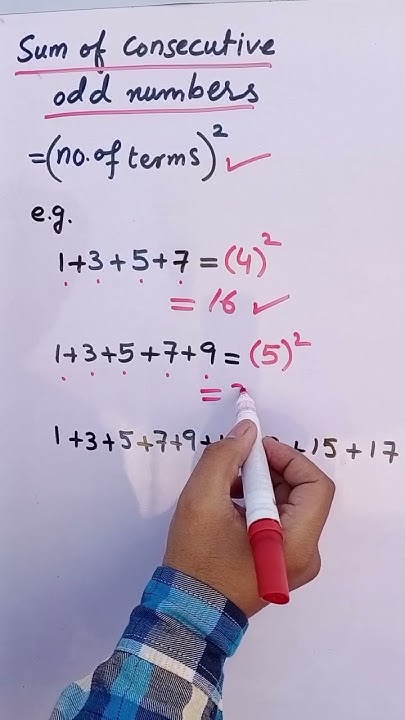 Sum of consecutive
odd numbers
=(no. of terms)²
e.g.
1+3+5+7=(4)²
=16
1+3+5+7+9=(5)²
=
1+3+5+7+9+ +15+17